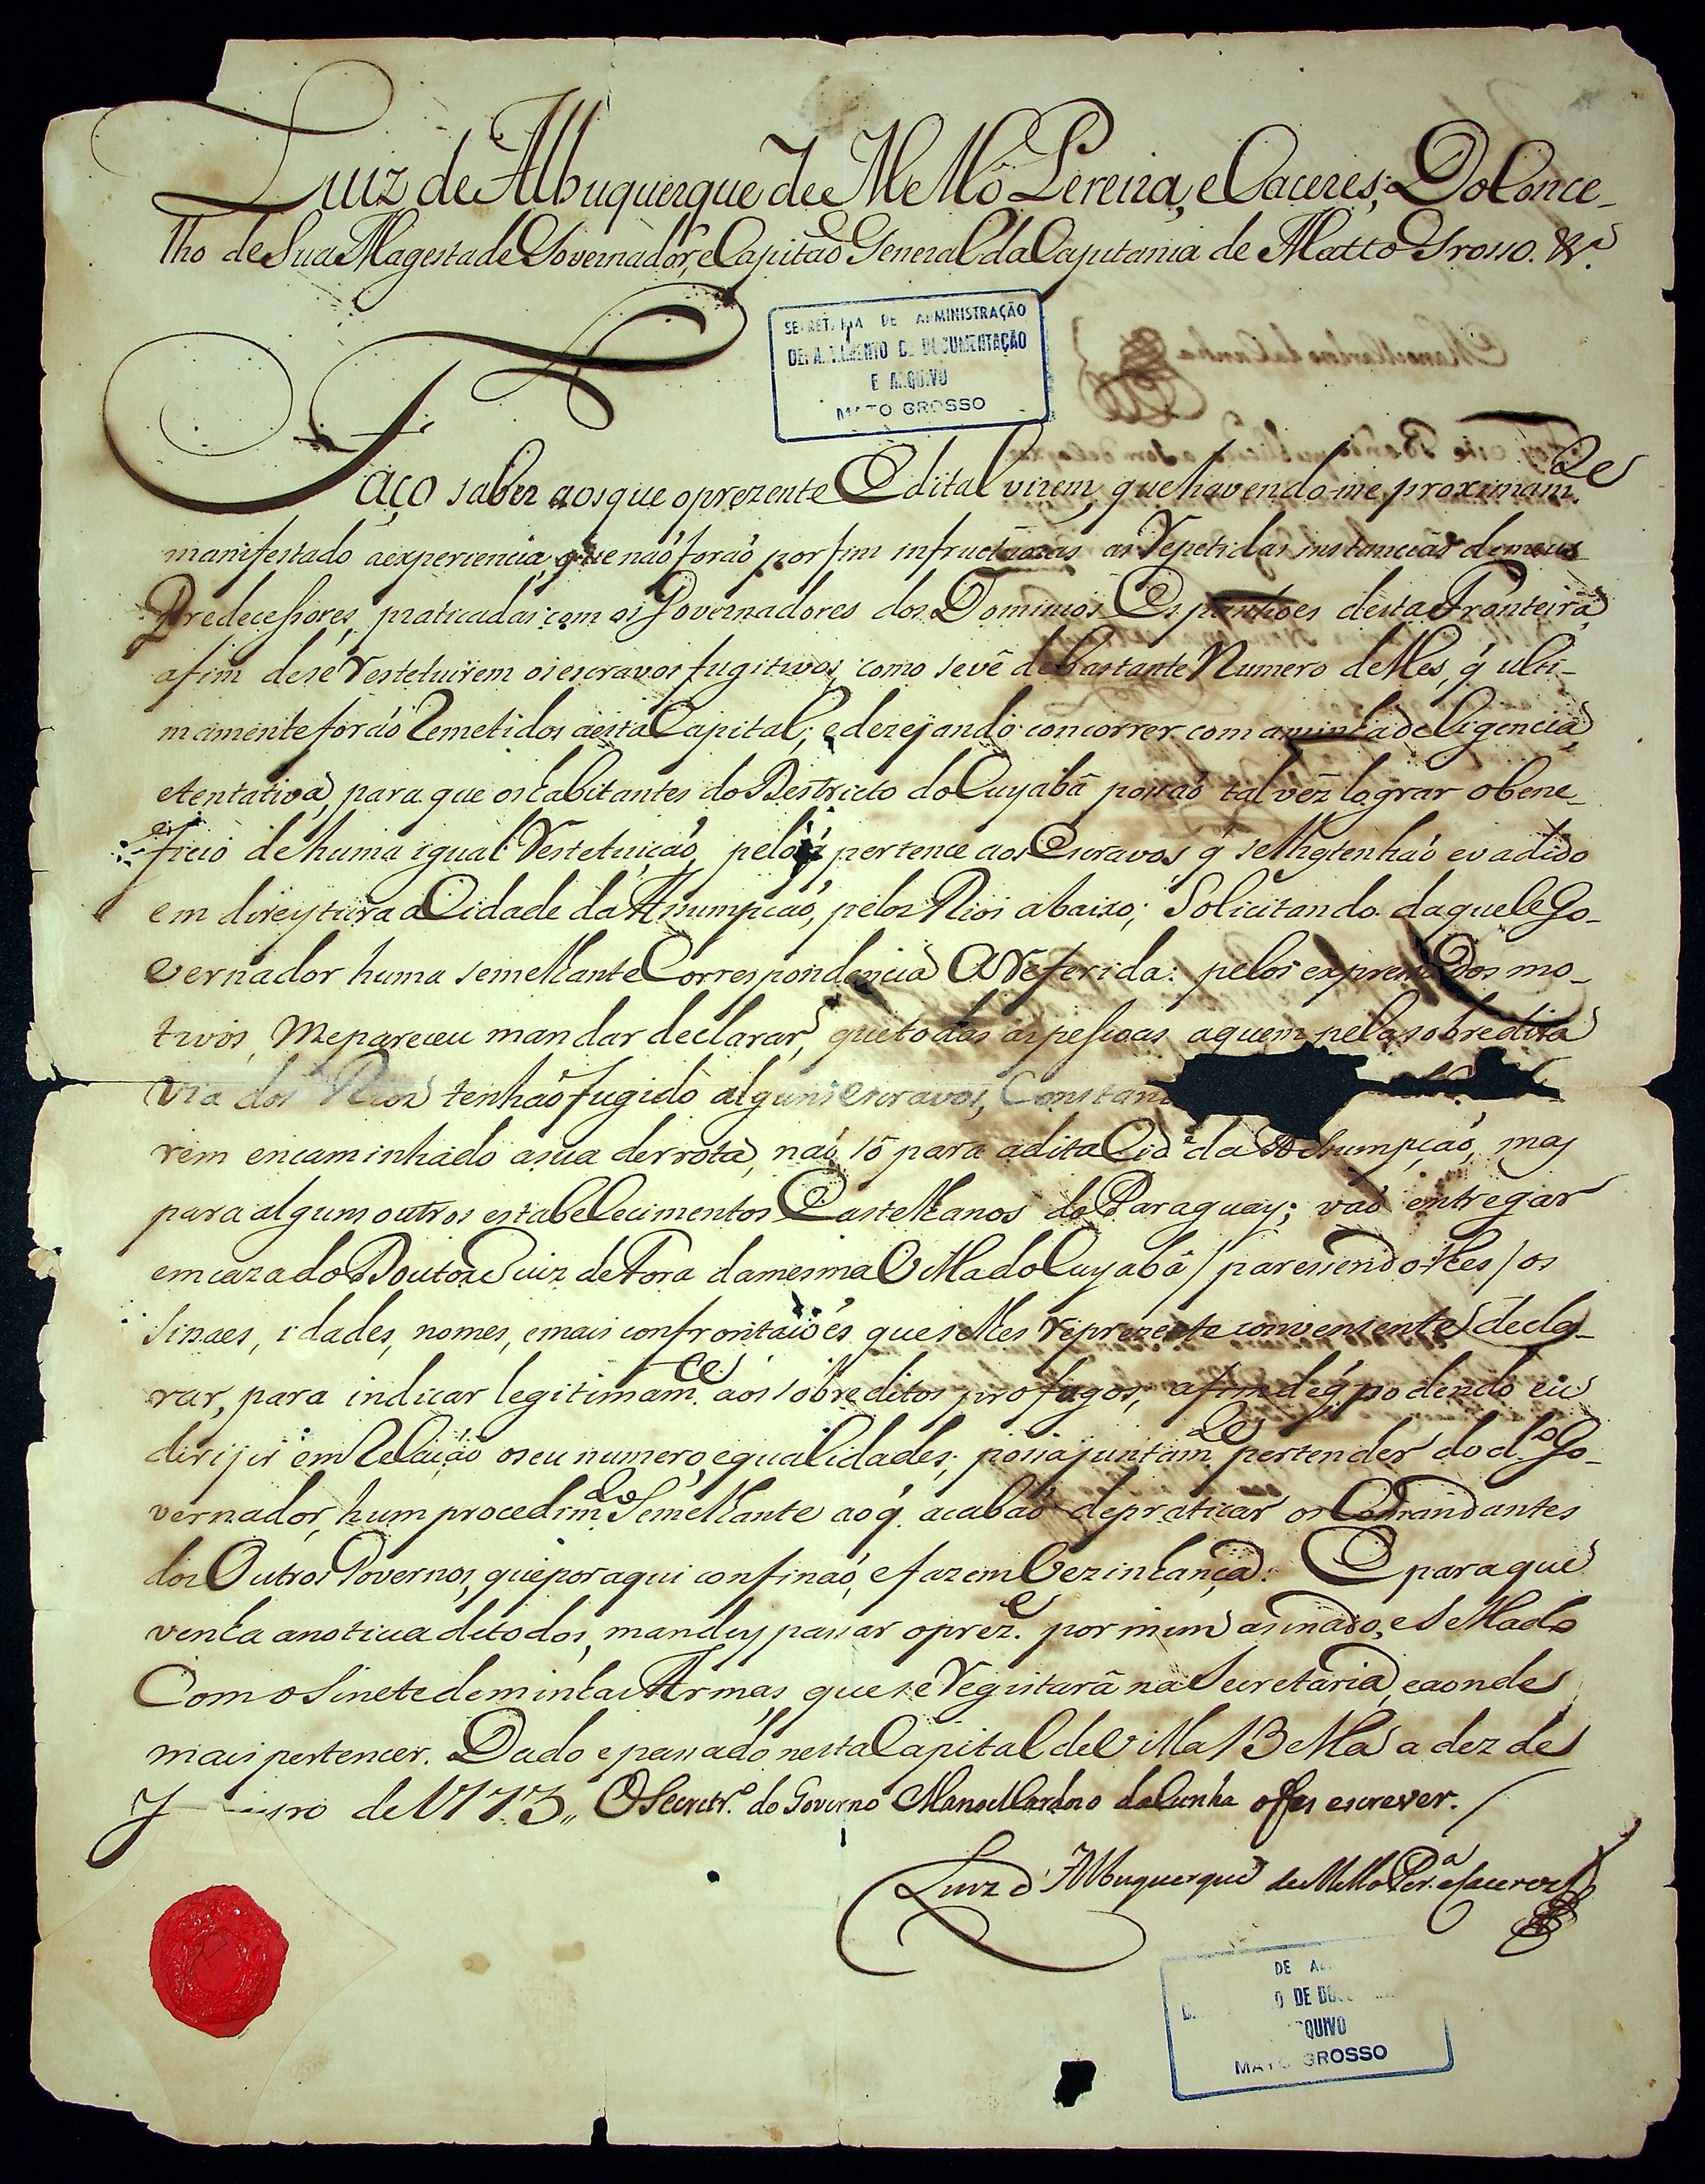 Luiz de Albuquerque de Mello Pereira, e Caceres; Do Conce-
lho de Sua Magestade Governador, e Capitaõ General da Capitania de Matto Grosso. &ª
SECRETARIA DE ADMINISTRAÇÃO
DEPARTAMENTO DE DOCUMENTAÇÃO
E ARQUIVO
MATO GROSSO
Faço saber aos que o prezente Edital virem, que havendo-me proximam.te
manifestado a experiencia, que naõ foraõ por fim infructuozas as repetidas instancias de meus
Predecessores, praticadas com os Governadores dos Dominios Espanhoes desta Fronteira,
afim de se restetuirem os escravos fugitivos, como se vê de bastante Numero delles, q̃ ulti-
mamente foraõ Remetidos a esta Capital; e dezejando concorrer com a minha deligencia,
e tentativa, para que os habitantes do Destricto do Cuyabá possaõ talvêz lograr o bene-
ficio de huma igual restetuiçaõ, pelo q̃ pertence aos Escravos, q̃ se lhe tenhaõ evadido
em direytura a Cidade da Assumpçaõ, pelos Rios abaixo; Solicitando daquele Go-
vernador huma semelhante Correspondencia a referida: pelos expressados mo-
tivos, me pareceu mandar declarar, que todas as pessoas aquem pela sobredita
via dos Rios tenhaõ fugido alguns escravos,
rem encaminhado a sua derrota, naõ só para a dita Cid.e da Assumpçaõ, mas
para alguns outros estabelecimentos Castelhanos do Paraguay; vaõ entregar
em caza do Doutor Juiz de Fora da mesma Villa do Cuyabá / paressendo-lhes / os
sinaes, idades, nomes, e mais confrontaçoẽs que se lhes reprezente conveniente decla-
rar, para indicar legitimam.te aos sobreditos profugos, afim de q̃ podendo eu
dirijir em Relaçaõ o seu numero, e qualidades; possa juntam.te pertender do d.º Go-
vernador, hum procedim.to Semelhante ao q̃ acabaõ de praticar os Comandantes
dos Outros Governos, que por aqui confinaõ, e fazem Vezinhança: E para que
venha a noticia de todos, mandey passar o prez.e por mim asinado, e Sellado
Com o Sinete de minhas Armas, que se registará na Secretaria, e aonde
mais pertencer. Dado e passado nesta Capital de Villa Bella a dez de
de 1773,, O Secretr.º do Governo Manoel Cardozo da Cunha o fes escrever.
Luiz d'Albuquerque de Mello Per.ª e Caceres
DE
DE
QUIVO
MATO GROSSO